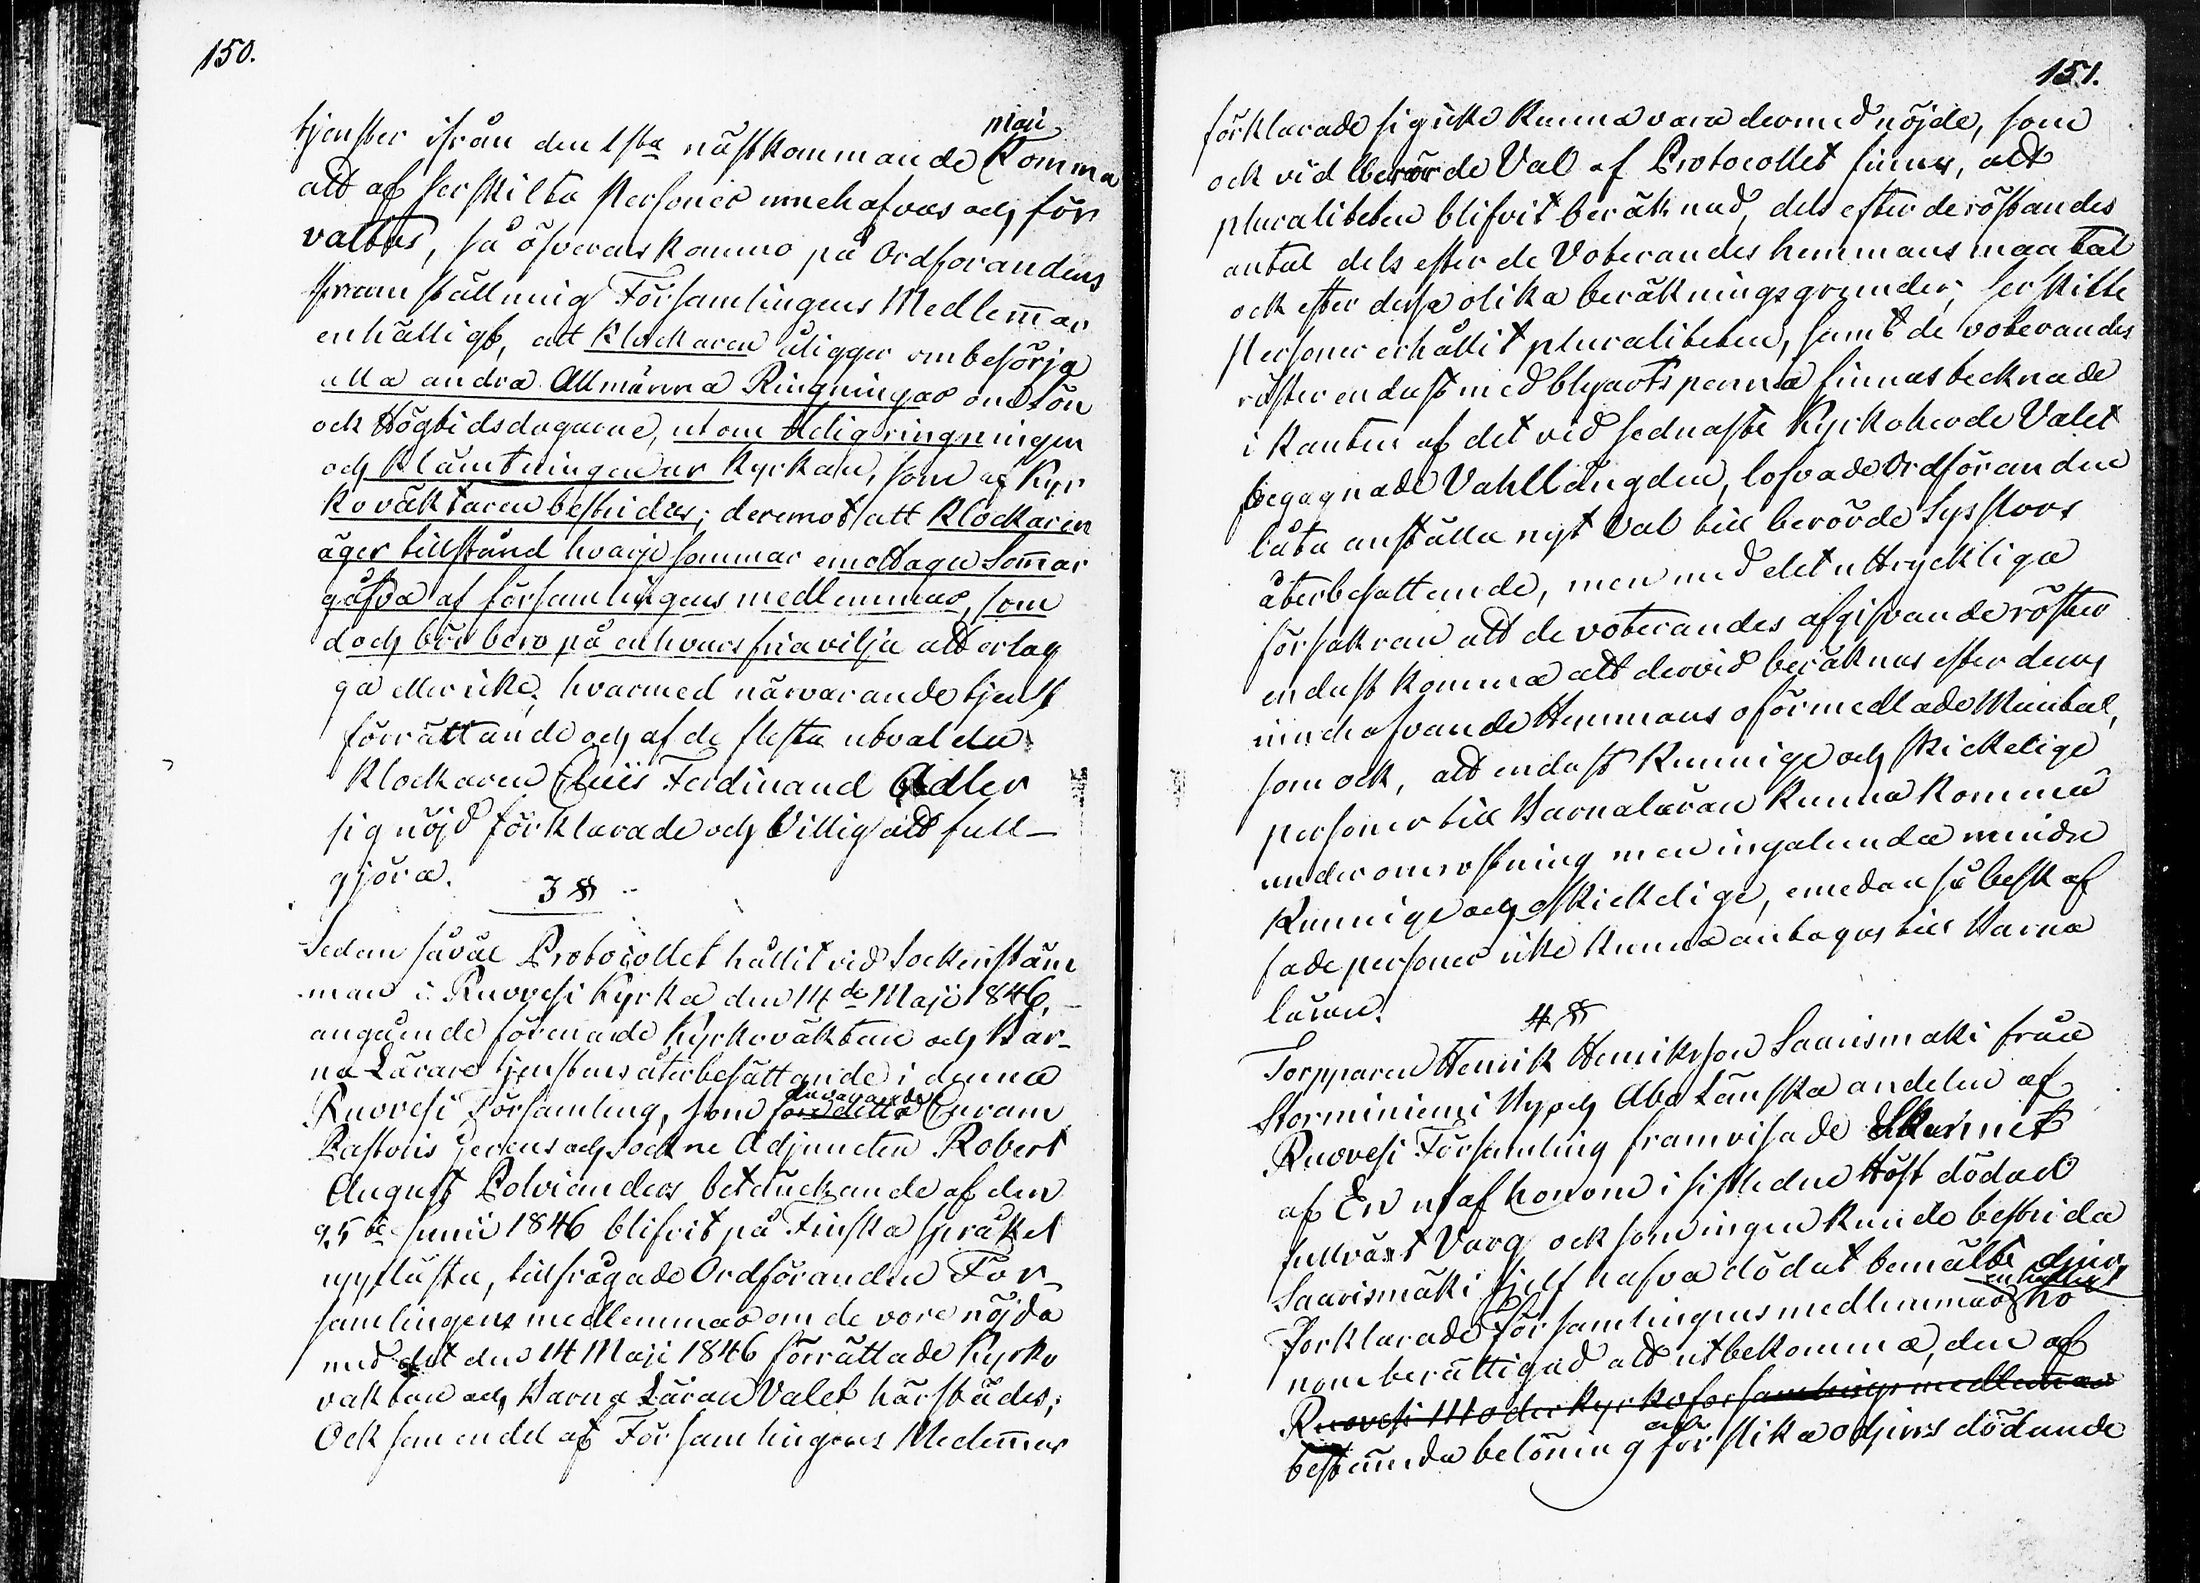 150.
maji
tjenster ifrån den 1sta nästkommande Komma
att af serskilta Personer innehafvas och för
valtas, så öfverenskommo på Ordförandens
framställning Församlingens Medlemmar
enhälligt, att Klockaren åligger ombesörja
alla andra Allmänna Ringningar om Sön
och Högtidsdagarne, utom Helgringningen
och Klämtningen ur Kyrkan, som af Kyr
koväktaren bestrides; deremot att Klockaren
äger tillstånd hvarje sommar emottaga Sommar
gåfva af församlingens medlemmar, som
doch bör bero på enhvars fria vilja att erläg
ga eller icke; hvarmed närvarande tjenst
förrättande och af de flesta utvalda
Klockaren Ferdinand Adler
sig nöjd förklarade och Villig att full-
gjöra.
3 §
Sedan såväl Protocollet hållit vid Sockenstäm
man i Ruovesi Kyrka den 14de Maji 1846,
angående förenade Kyrkoväktare och Bar-
na Lärare tjenstens återbesättande i denna
Ruovesi Församling, som dåvarande
för detta Curam
Pastoris gerens och Sockne Adjuncten Robert
August Polvianders betänckande af den
25te Junii 1846 blifvit på Finska språket
uppläste, tillfrågade Ordföranden För-
samlingens medlemmar om de vore nöjda
med det den 14 Maji 1846 förrättade Kyrko
vaktare och Barna Läran Valet härstädes;
Och som en del af Församlingens Medlemmar
151.
förklarade sig icke Kunna vara dermed nöjde, som
ock vid berörde Val af Protocollet finnes, att
pluraliteten blifvit beräknad, dels efter de röstandes
antal dels efter de Voterandes hemmans mantal
och efter dessa olika beräkningsgrunder, serskilte
Personer erhållit pluraliteten, samt de voterandes
röster endast med blyartspenna finnas tecknade
i Kanten af det vid sednaste Kyrkoherde Valet
begagnade Vahllängden, lofvade Ordföranden
låta anställa nytt Val till berörde Sysslors
återbesättande, men med det uttryckliga
försäkran att de voterandes afgifvande röster
endast komma att dervid beräknas efter deras
innehafvande Hemmans oförmedlade Mantal,
som ock, att endast Kunnige och skickelige
personer till Barnaläran kunna komma
under omröstning men ingalunda mindre
Kunnige och oskickelige, emedan så beskaf
fade personer icke kunna antagas till Barna
läran.
4 §
Torpparen Henrik Henriksson Saarismäki från
Storminiemi By och Åbo Länska andelen af
Ruovesi Församling framvisade Skinnet
af En utaf honom i sistledne Höst dödad
fullväxt Varg och som ingen kunde bestrida
Saarismäki sjelf hafva dödat bemälte djur
enhälligt
Förklarade Församlingens medlemmar ho
nom berättigad att utbekomma, den af
Ruovesi Moderkyrkoförsamlings medlemmar
bestämda belöning för slika odjurs dödande